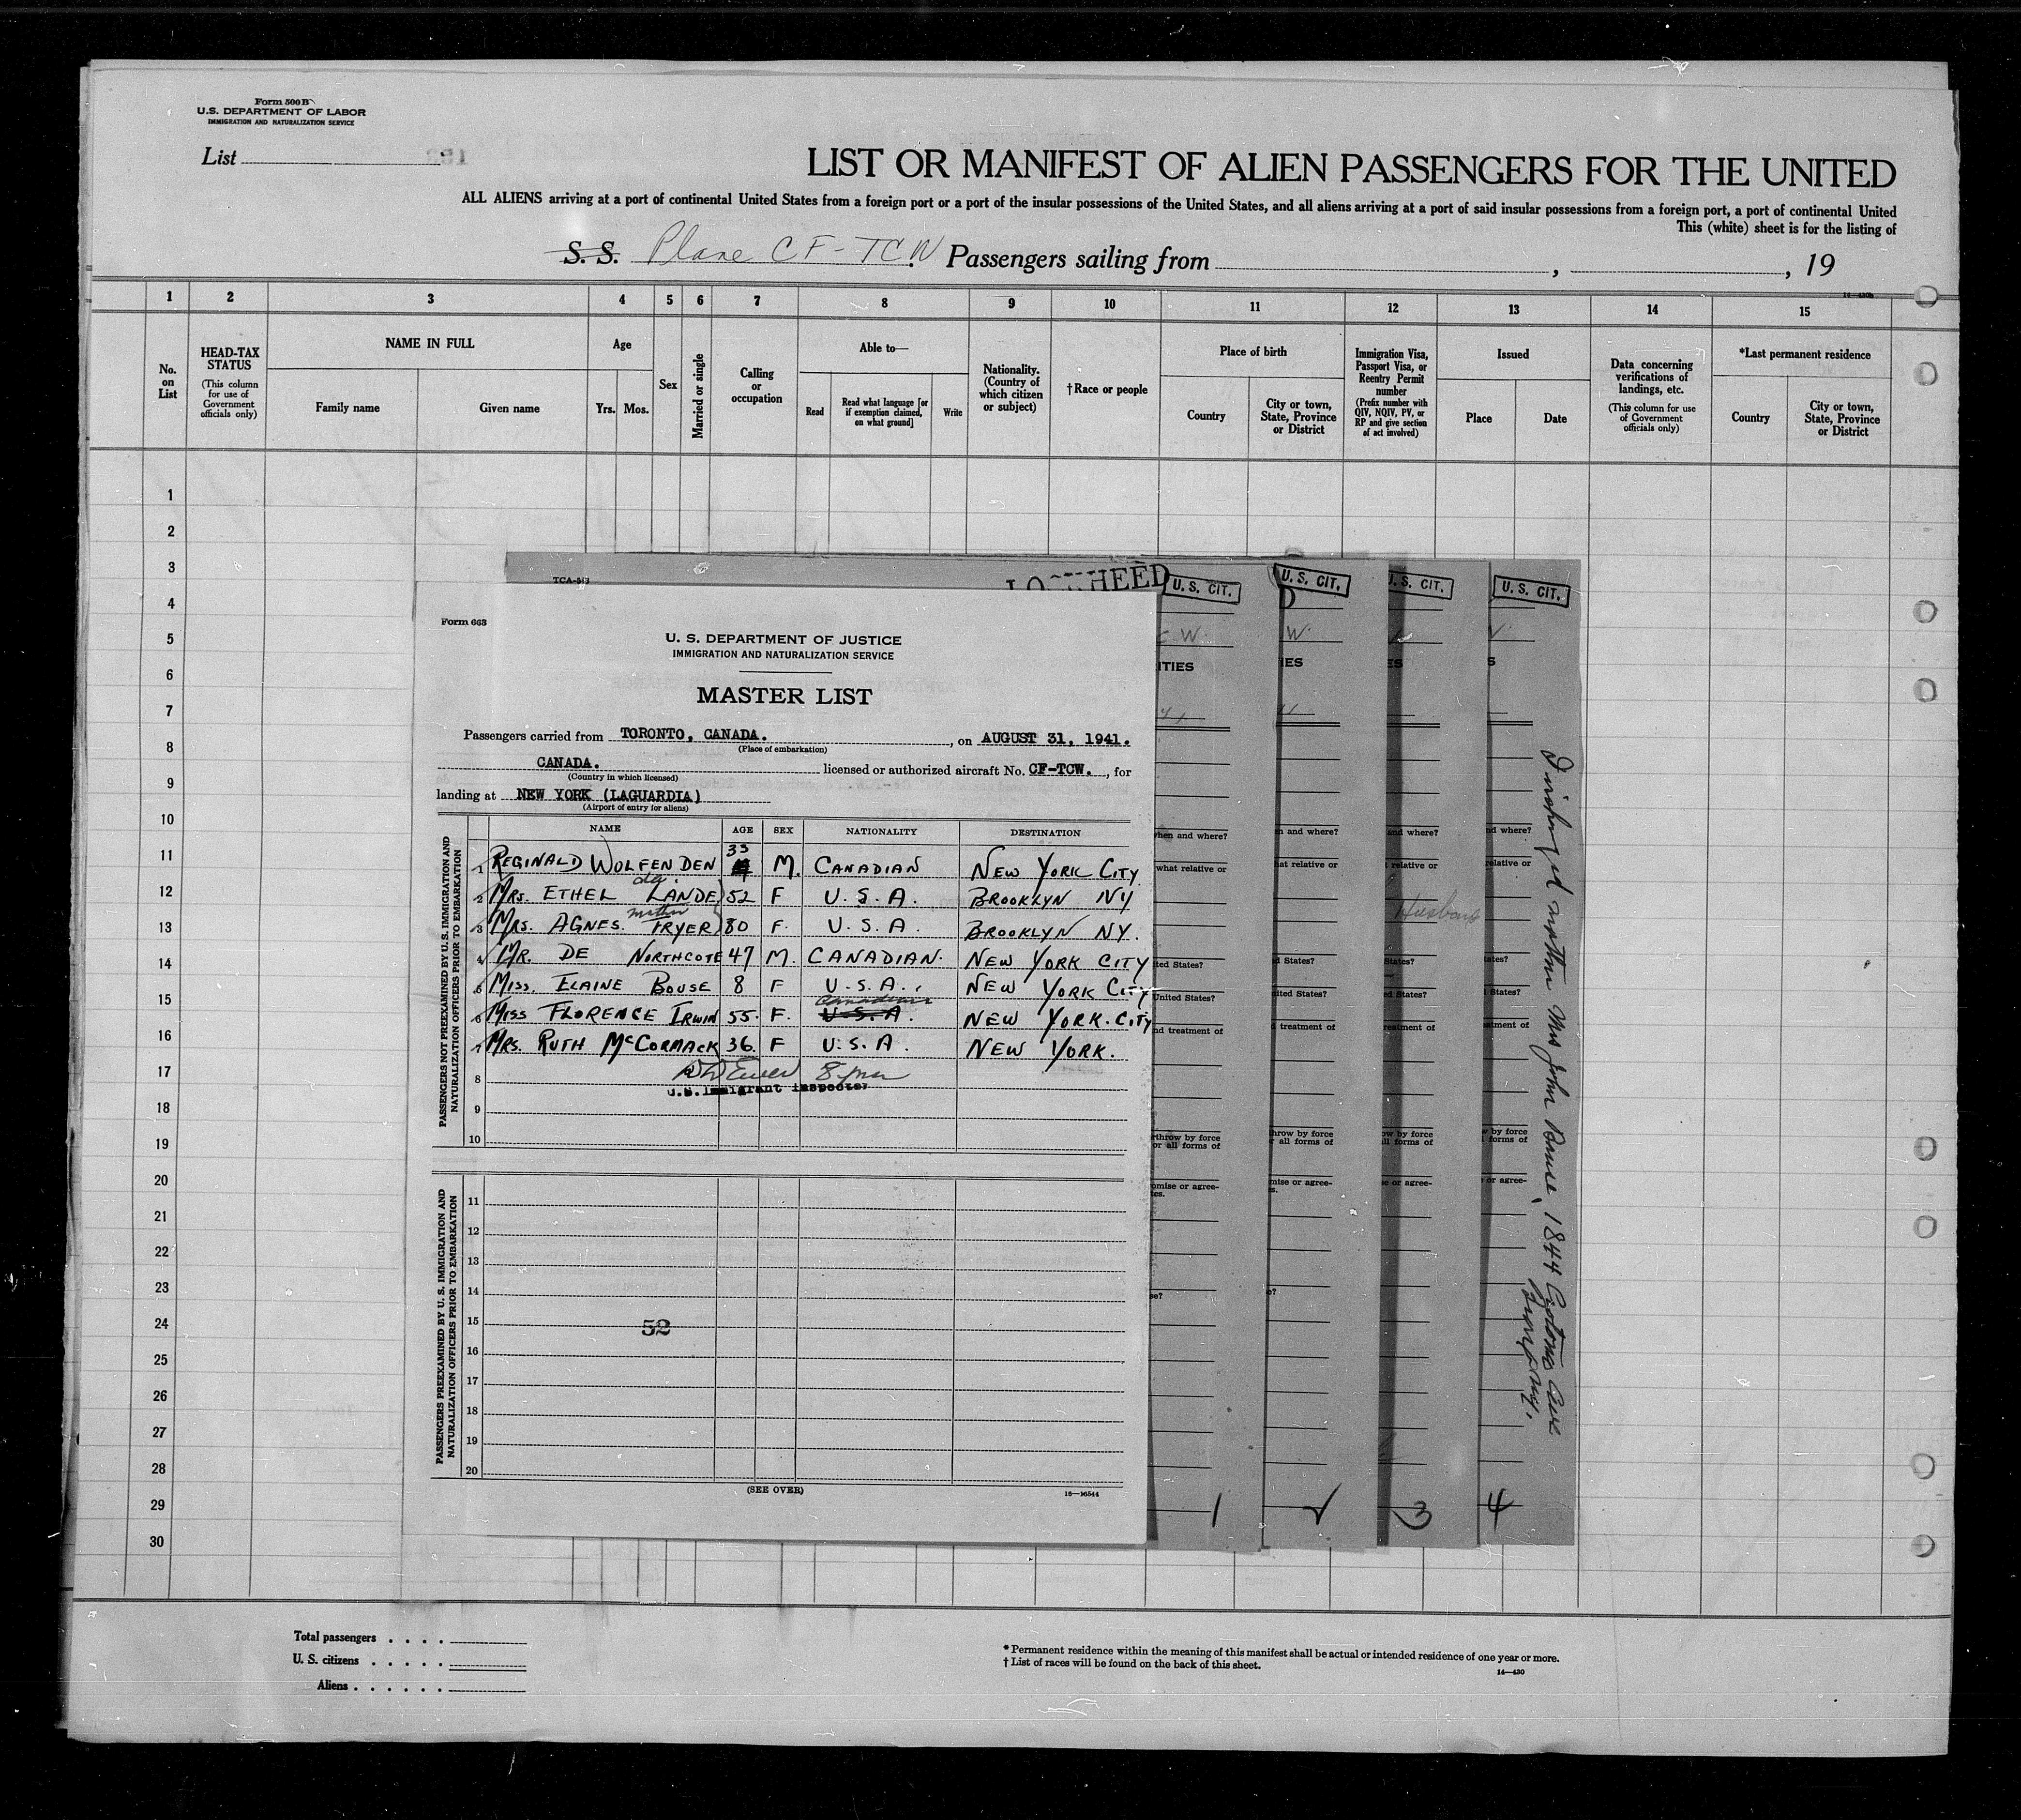 Form 500 B
U.S. DEPARTMENT OF LABOR
IMMIGRATION AND NATURALIZATION SERVICE
List
LIST OR MANIFEST OF ALIEN PASSENGERS FOR THE UNITED
ALL ALIENS arriving at a port of continental United States from a foreign port or a port of the insular possessions of the United States, and all aliens arriving at a port of said insular possessions from a foreign port, a port of continental United
This (white) sheet is for the listing of
S. S. Plane CF-TCW Passengers sailing from , , 19
1 2 3 4 5 6 7 8 9 10 11 12 13 14 15
No. on List
HEAD-TAX STATUS
(This column for use of Government officials only)
NAME IN FULL
Family name
Given name
Age
Yrs. Mos.
Sex
Married or single
Calling or occupation
Able to—
Read
Read what language [or if exemption claimed, on what ground]
Write
Nationality. (Country of which citizen or subject)
†Race or people
Place of birth
Country
City or town, State, Province or District
Immigration Visa, Passport Visa, or Reentry Permit number
(Prefix number with QIV, NQIV, PV, or RP and give section of act involved)
Issued
Place
Date
Data concerning verifications of landings, etc.
(This column for use of Government officials only)
*Last permanent residence
Country
City or town, State, Province or District
1
2
3
4
5
6
7
8
9
10
11
12
13
14
15
16
17
18
19
20
21
22
23
24
25
26
27
28
29
30
Form 663
U. S. DEPARTMENT OF JUSTICE
IMMIGRATION AND NATURALIZATION SERVICE
MASTER LIST
Passengers carried from TORONTO, CANADA. , on AUGUST 31, 1941.
(Place of embarkation)
CANADA. licensed or authorized aircraft No. CF-TCW. , for
(Country in which licensed)
landing at NEW YORK (LAGUARDIA)
(Airport of entry for aliens)
PASSENGERS NOT PREEXAMINED BY U. S. IMMIGRATION AND NATURALIZATION OFFICERS PRIOR TO EMBARKATION
NAME AGE SEX NATIONALITY DESTINATION
33
1 REGINALD WOLFENDEN M. CANADIAN NEW YORK CITY
da.
2 MRS. ETHEL LANDE 52 F U.S.A. BROOKLYN NY
mother
3 MRS. AGNES. FRYER 80 F. U.S.A. BROOKLYN NY.
4 MR. DE NORTHCOTE 47 M. CANADIAN. NEW YORK CITY
5 MISS. ELAINE BOUSE 8 F U.S.A. NEW YORK CITY
Canadian
6 MISS FLORENCE IRWIN 55. F. U.S.A. NEW YORK. CITY
7 MRS. RUTH McCORMACK 36. F U.S.A. NEW YORK.
8
U.S. Immigrant Inspector
9
10
PASSENGERS PREEXAMINED BY U. S. IMMIGRATION AND NATURALIZATION OFFICERS PRIOR TO EMBARKATION
11
12
13
14
15
52
16
17
18
19
20
(SEE OVER)
16—16544
U. S. CIT.
U. S. CIT.
U. S. CIT.
U. S. CIT.
Husband
1
2
3
4
Total passengers
U. S. citizens
Aliens
* Permanent residence within the meaning of this manifest shall be actual or intended residence of one year or more.
† List of races will be found on the back of this sheet.
14—430